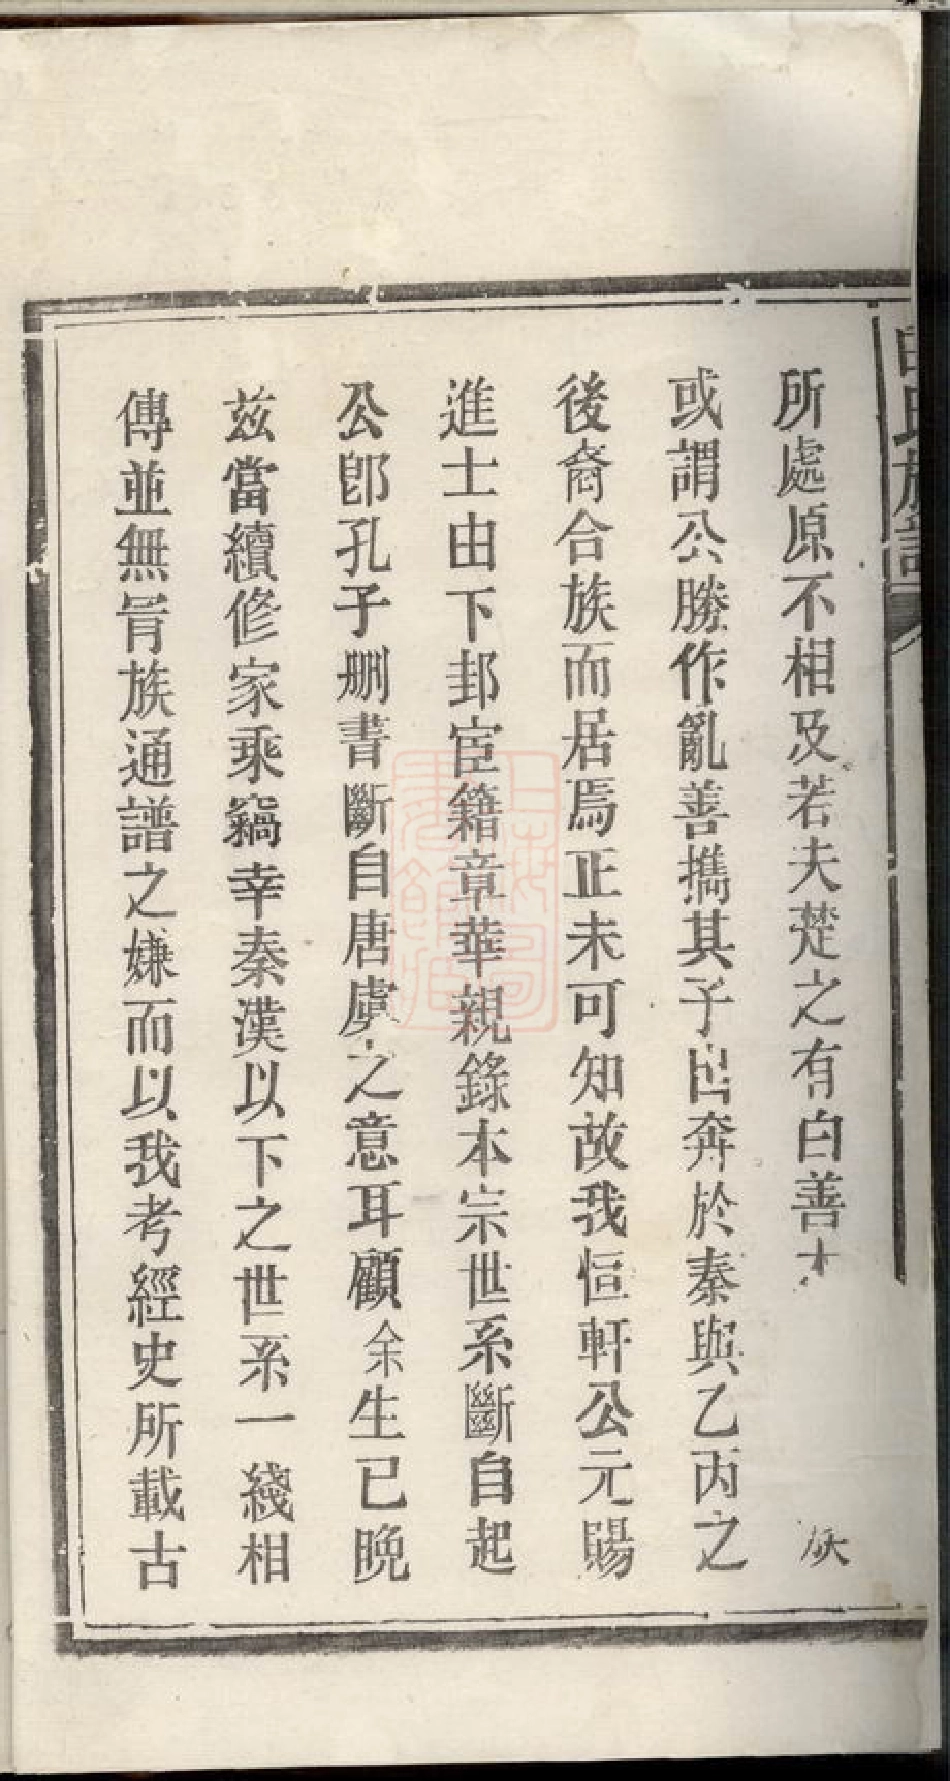 所處原不相及若夫楚之有白善
或謂公勝作亂善攜其子奔於秦與乙丙之
後裔合族而居焉正未可知故我恒軒公元賜
進士由下邽宦籍章華親錄本宗世系斷自起
公卽孔子刪書斷自唐虞之意耳顧余生已晚
茲當續修家乘竊幸秦漢以下之世系一綫相
傳並無冐族通譜之嫌而以我考經史所載古